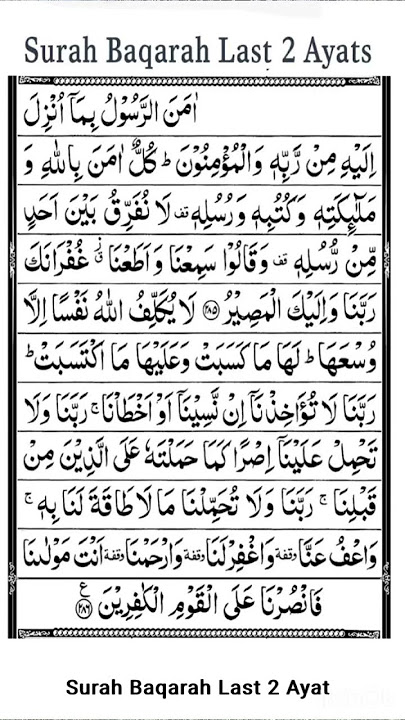 Surah Baqarah Last 2 Ayats
اٰمَنَ الرَّسُوْلُ بِمَاۤ اُنْزِلَ
اِلَيْهِ مِنْ رَّبِّهٖ وَالْمُؤْمِنُوْنَ ؕ كُلٌّ اٰمَنَ بِاللّٰهِ وَ
مَلٰٓئِكَتِهٖ وَكُتُبِهٖ وَرُسُلِهٖ قف لَا نُفَرِّقُ بَيْنَ اَحَدٍ
مِّنْ رُّسُلِهٖ قف وَقَالُوْا سَمِعْنَا وَاَطَعْنَا ق غُفْرَانَكَ
رَبَّنَا وَاِلَيْكَ الْمَصِيْرُ ﴿۲۸۵﴾ لَا يُكَلِّفُ اللّٰهُ نَفْسًا اِلَّا
وُسْعَهَا ؕ لَهَا مَا كَسَبَتْ وَعَلَيْهَا مَا اكْتَسَبَتْ ؕ
رَبَّنَا لَا تُؤَاخِذْنَاۤ اِنْ نَّسِيْنَاۤ اَوْ اَخْطَاْنَا ۚ رَبَّنَا وَلَا
تَحْمِلْ عَلَيْنَاۤ اِصْرًا كَمَا حَمَلْتَهٗ عَلَى الَّذِيْنَ مِنْ
قَبْلِنَا ۚ رَبَّنَا وَلَا تُحَمِّلْنَا مَا لَا طَاقَةَ لَنَا بِهٖ ۚ
وَاعْفُ عَنَّا وقفة وَاغْفِرْلَنَا وقفة وَارْحَمْنَا وقفة اَنْتَ مَوْلٰىنَا
فَانْصُرْنَا عَلَى الْقَوْمِ الْكٰفِرِيْنَ ﴿۲۸۶﴾ ع
Surah Baqarah Last 2 Ayat